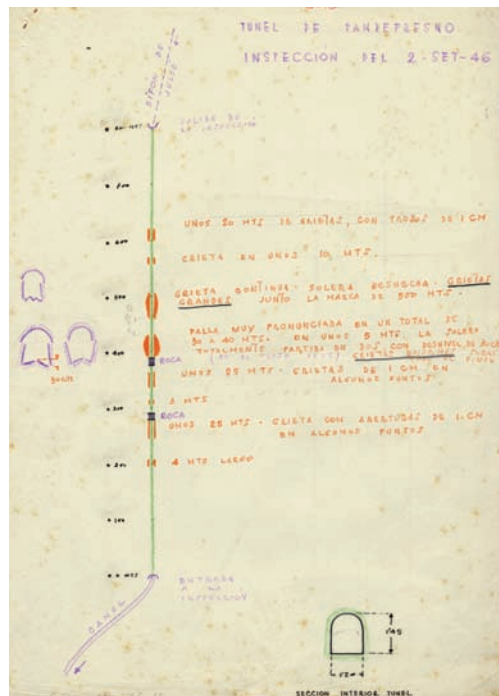 TUNEL DE
INSPECCION DEL 2-SET-46
SIFON DE
SALIDA DE
LA INSPECCION
UNOS 20 MTS DE GRIETAS, CON TROZOS DE 1 CM
GRIETA EN UNOS 10 MTS.
GRIETA CONTINUA - SOLERA DESHECHA - GRIETAS
GRANDES JUNTO LA MARCA DE 500 MTS.
FALLA MUY PRONUNCIADA EN UN TOTAL DE
30 A 40 MTS. EN UNOS 5 MTS LA SOLERA
TOTALMENTE PARTIDA EN DOS CON DESNIVEL DE
ROCA
UNOS 25 MTS - GRIETAS DE 1 CM EN
ALGUNOS PUNTOS
3 MTS
ROCA
UNOS 25 MTS - GRIETA CON ABERTURAS DE 1 CM
EN ALGUNOS PUNTOS
4 MTS LARGO
ENTRADA
A LA
INSPECCION
CANAL
SECCION INTERIOR TUNEL